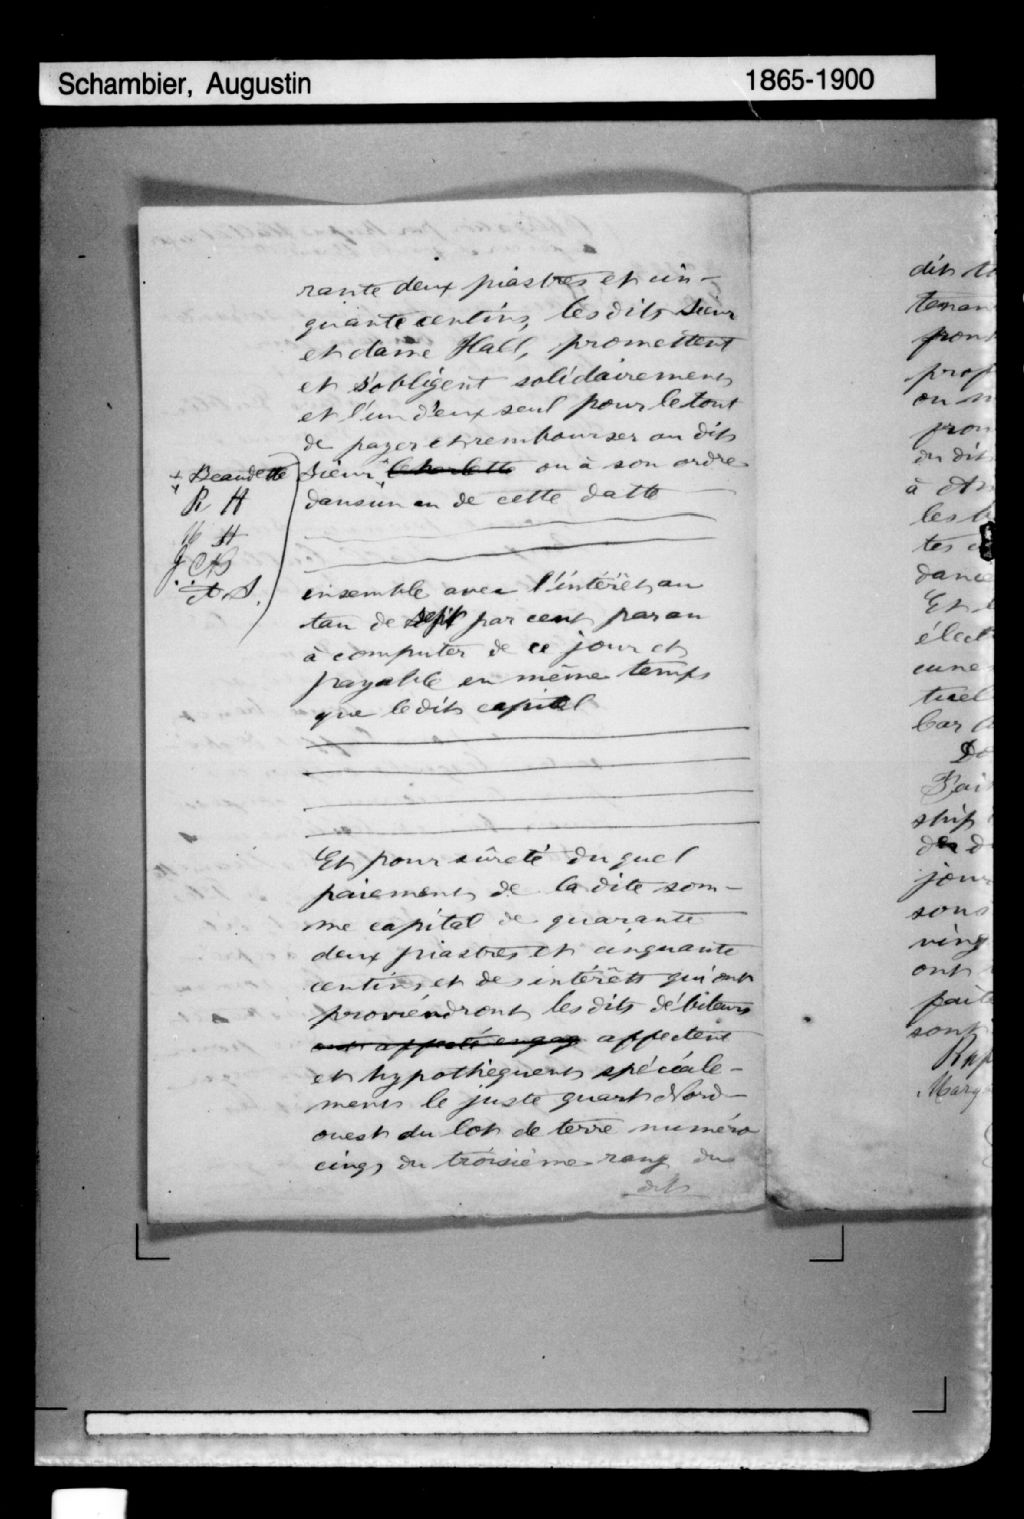 Schambier, Augustin 1865-1900
rante deux piastres et cin-
quante centins, les dits Sieur
et dame Hall, promettent
et s'obligent solidairement
et l'un d'eux seul pour le tout
de payer et rembourser au dit
+ Beaudette
Sieur + Charlotte ou à son ordre
R H
dans un an de cette datte
M H
J. CB
A. S.
ensemble avec l'intérêt au
tau de sept par cent par an
à computer de ce jour et
payable en même temps
que le dit capital
Et pour sûreté du quel
paiement de la dite som-
me capital de quarante
deux piastres et cinquante
centins et des intérêts qui en
proviendront les dits débiteurs
ont affecté engag affectent
et hypothèquent spéciale-
ment le juste quart Nord-
ouest du lot de terre numéro
cinq du troisième rang du
dit
dit
tenan
prop
ou
prou
du dit
à
les
tes
dance
Et
élect
cune
tuel
Car
Do
Fait
ship
de d
jour
sous
ving
ont
faite
sont
Rup
Mary